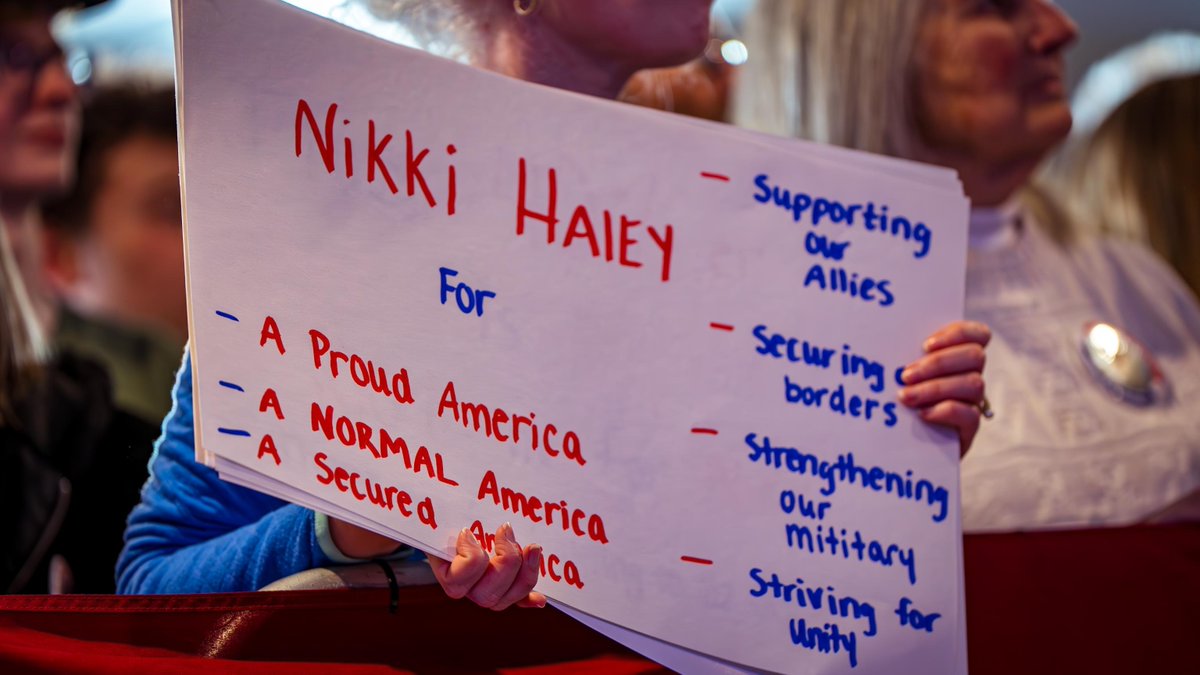 Nikki Haley
For
- A Proud America
- A NORMAL America
- A Secured America
- Supporting
our
Allies
- Securing
borders
- Strengthening
our
mititary
- Striving for
Unity